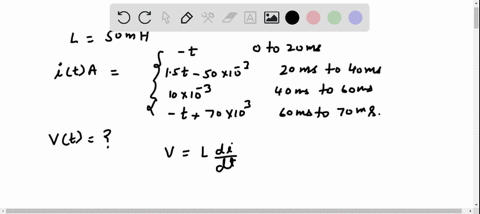 L = 50mH
i(t)A = { -t 0 to 20ms
1.5t - 50×10⁻³ 20ms to 40ms
10×10⁻³ 40ms to 60ms
-t + 70×10³ 60ms to 70ms.
V(t) = ? V = L di/dt